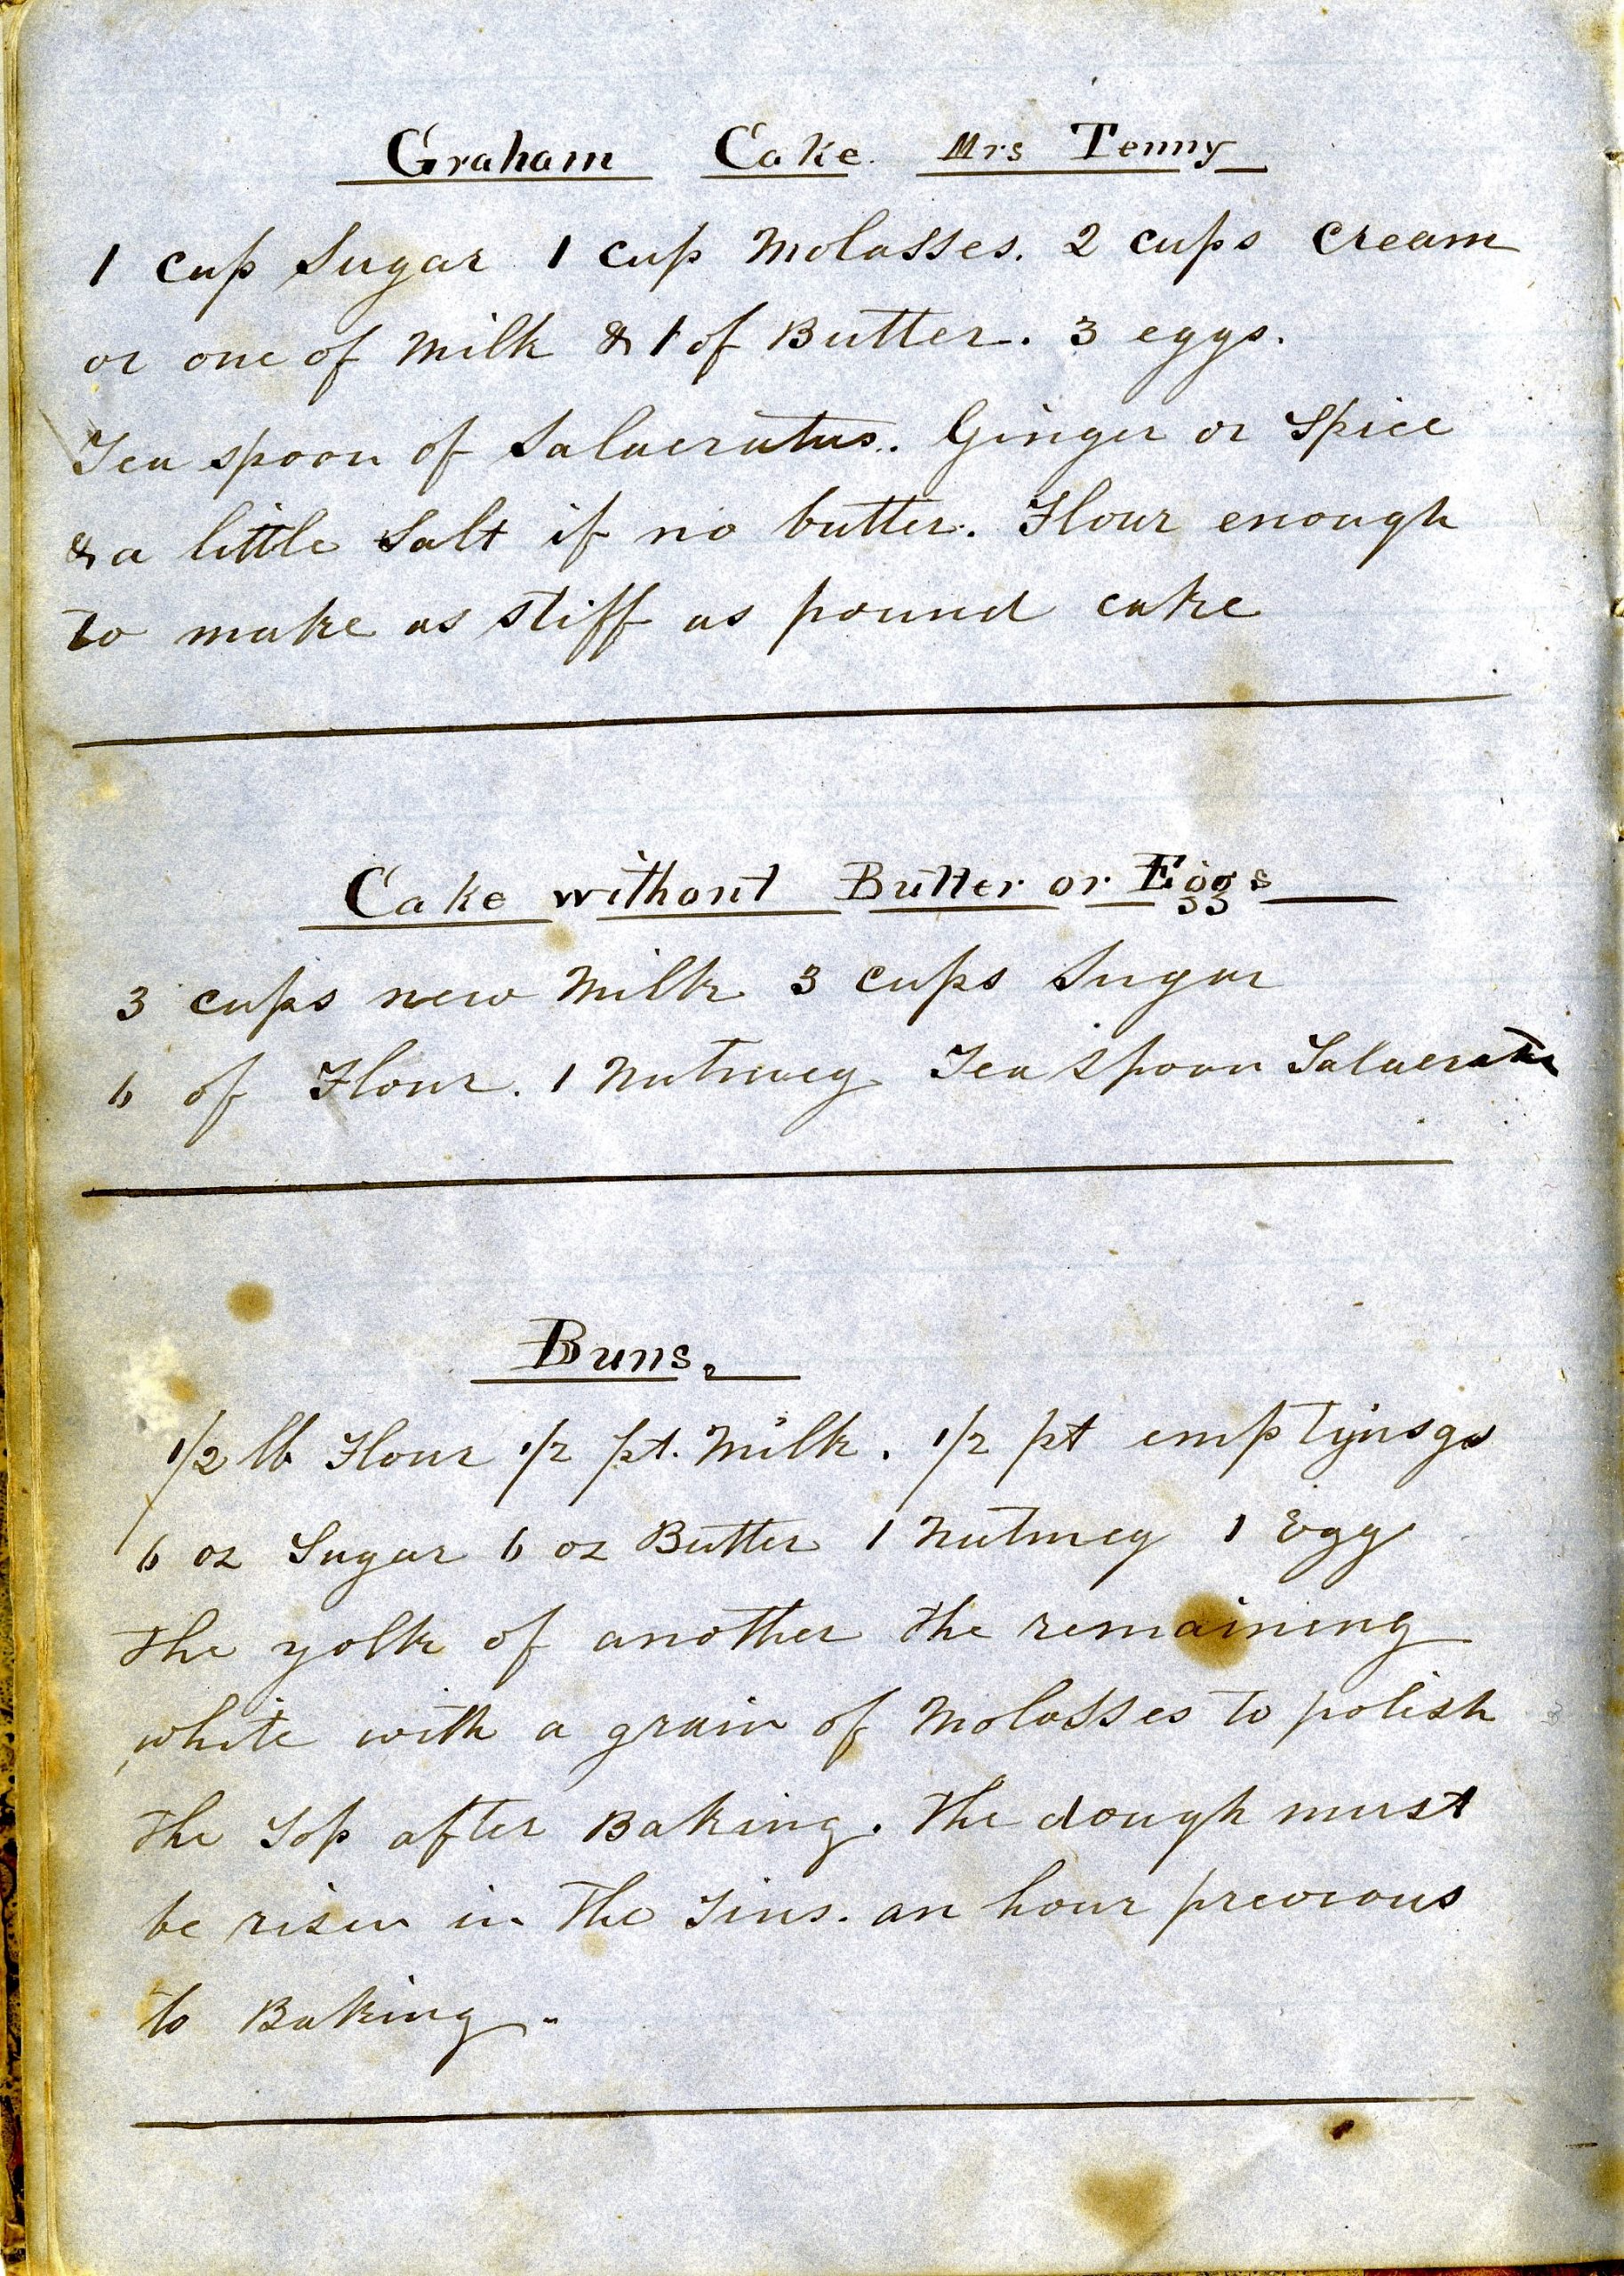 Graham Cake. Mrs Tenny
1 cup Sugar 1 cup Molasses. 2 cups cream
or one of Milk & 1 of Butter. 3 eggs.
Tea spoon of Salaeratus. Ginger or Spice
& a little Salt if no butter. Flour enough
to make as stiff as pound cake
Cake without Butter or Eggs
3 cups new Milk 3 cups Sugar
6 of Flour. 1 Nutmeg Tea spoon Salaerate
Buns.
1/2 lb Flour 1/2 pt. Milk. 1/2 pt emptynsgs
6 oz Sugar 6 oz Butter 1 Nutmeg 1 Egg
the yolk of another the remaining
white with a grain of Molasses to polish
the Top after Baking. The dough must
be risen in The Tins. an hour previous
to Baking.